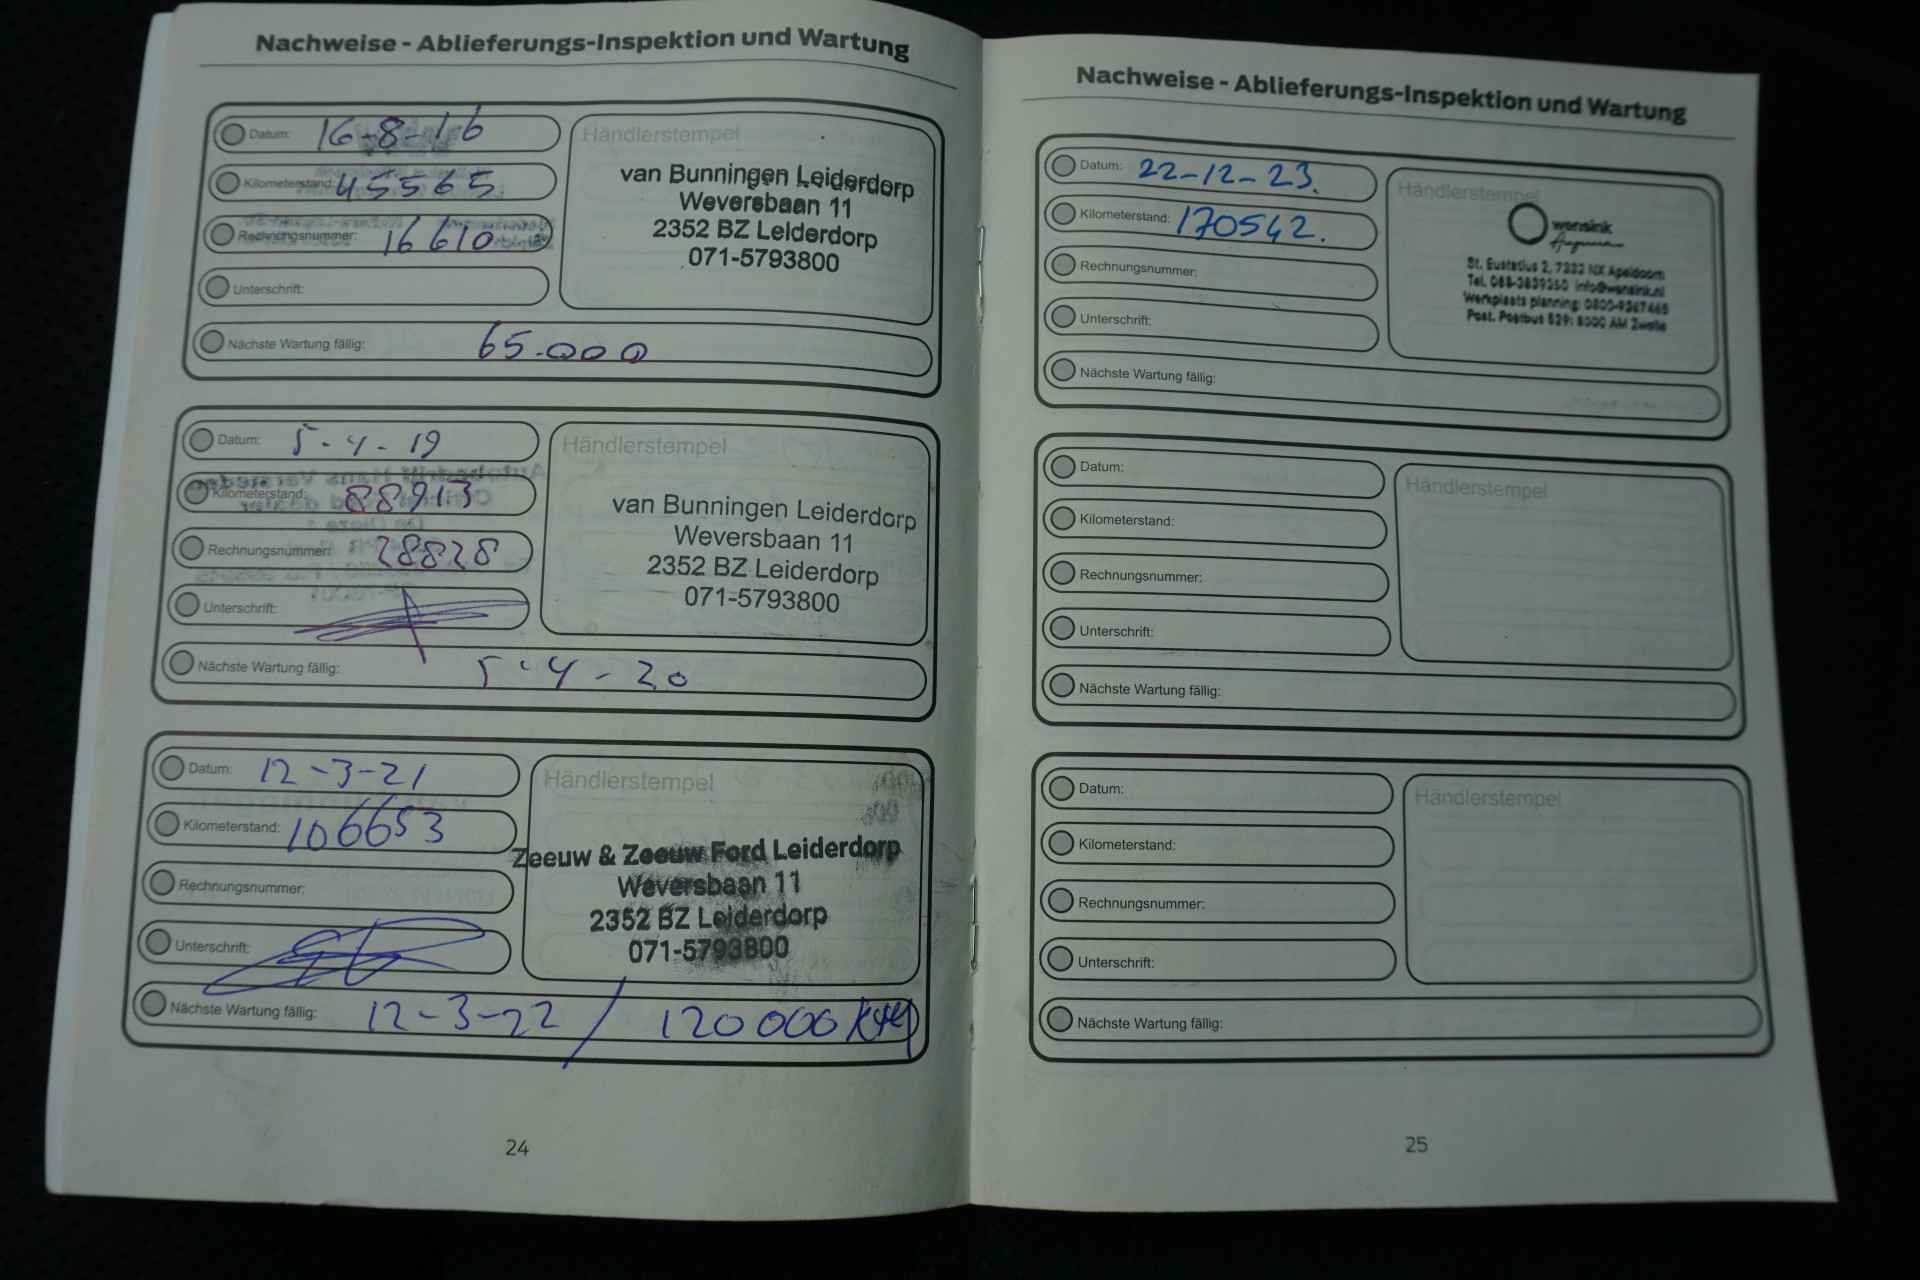 Nachweise - Ablieferungs-Inspektion und Wartung
Datum: 16-8-16
Kilometerstand: 45565
Rechnungsnummer: 16610
Unterschrift:
Nächste Wartung fällig: 65.000
Händlerstempel
van Bunningen Leiderdorp
Weversbaan 11
2352 BZ Leiderdorp
071-5793800
Datum: 5-4-19
Kilometerstand: 88913
Rechnungsnummer: 28828
Unterschrift:
Nächste Wartung fällig: 5-4-20
Händlerstempel
van Bunningen Leiderdorp
Weversbaan 11
2352 BZ Leiderdorp
071-5793800
Datum: 12-3-21
Kilometerstand: 106653
Rechnungsnummer:
Unterschrift:
Nächste Wartung fällig: 12-3-22 / 120 000 km
Händlerstempel
Zeeuw & Zeeuw Ford Leiderdorp
Weversbaan 11
2352 BZ Leiderdorp
071-5793800
24
Nachweise - Ablieferungs-Inspektion und Wartung
Datum: 22-12-23.
Kilometerstand: 170542.
Rechnungsnummer:
Unterschrift:
Nächste Wartung fällig:
Händlerstempel
wensink
St. Eustatius 2, 7332 NX Apeldoorn
Tel. 088-3839350 info@wensink.nl
Werkplaats planning: 0800-9367465
Post. Postbus 529; 8000 AM Zwolle
Datum:
Kilometerstand:
Rechnungsnummer:
Unterschrift:
Nächste Wartung fällig:
Händlerstempel
Datum:
Kilometerstand:
Rechnungsnummer:
Unterschrift:
Nächste Wartung fällig:
Händlerstempel
25